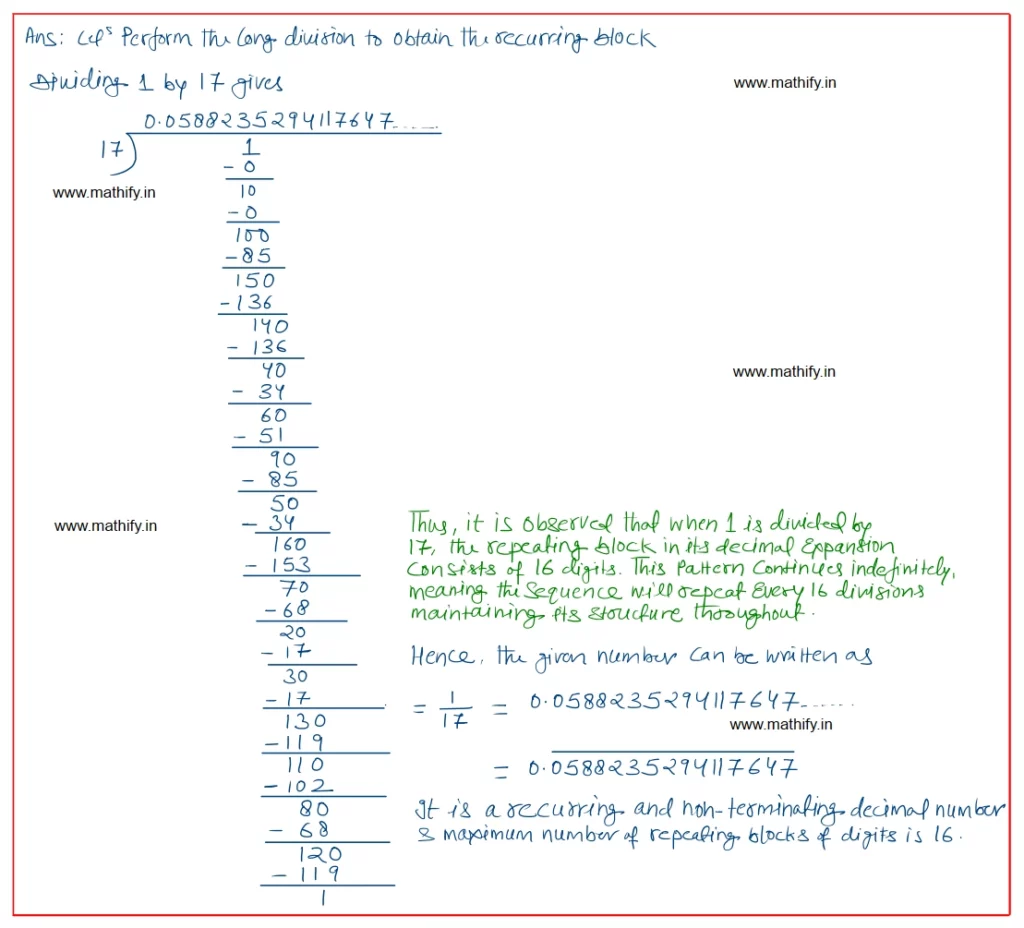 Ans: Let's Perform the long division to obtain the recurring block
Dividing 1 by 17 gives
www.mathify.in
0.0588235294117647......
17) 1
- 0
www.mathify.in
10
- 0
100
- 85
150
- 136
140
- 136
www.mathify.in
40
- 34
60
- 51
90
- 85
50
- 34
www.mathify.in
160
- 153
70
- 68
20
- 17
30
- 17
130
- 119
110
- 102
80
- 68
120
- 119
1
Thus, it is observed that when 1 is divided by
17, the repeating block in its decimal Expansion
Consists of 16 digits. This Pattern Continues indefinitely,
meaning the Sequence will repeat Every 16 divisions
maintaining its structure throughout.
Hence, the given number can be written as
= 1/17 = 0.0588235294117647.......
www.mathify.in
= 0.0588235294117647
It is a recurring and non-terminating decimal number
& maximum number of repeating blocks of digits is 16.